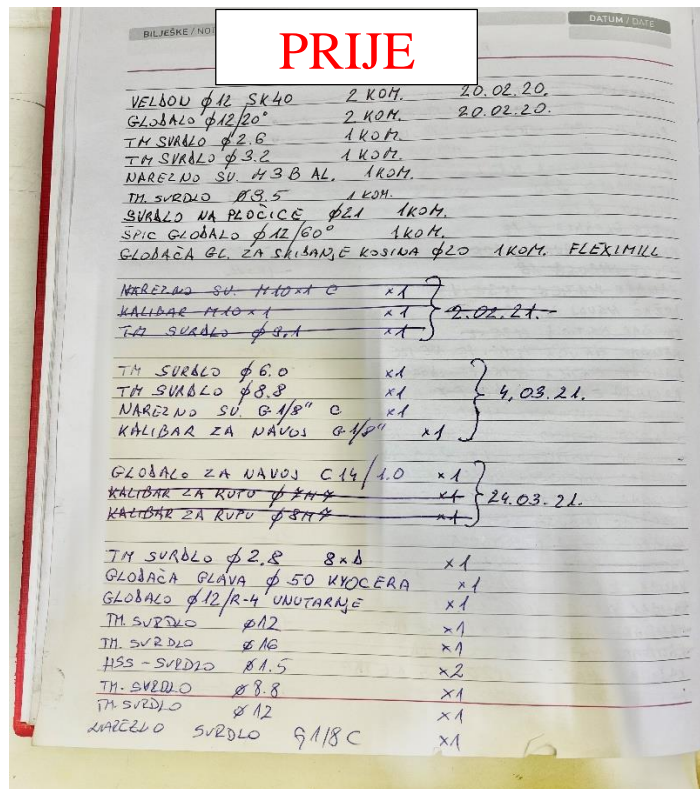 BILJEŠKE / NO
PRIJE
DATUM / DATE
VELDON ϕ12 SK40 2 KOM. 20.02.20.
GLODALO ϕ12/20° 2 KOM. 20.02.20.
TM SVRDLO ϕ2.6 1 KOM.
TM SVRDLO ϕ3.2 1 KOM.
NAREZNO SV. M3 B AL. 1 KOM.
TM. SVRDLO ϕ9.5 1 KOM.
SVRDLO NA PLOČICE ϕ21 1 KOM.
ŠPIC GLODALO ϕ12/60° 1 KOM.
GLODAČA GL. ZA SKIDANJE KOSINA ϕ20 1 KOM. FLEXIMILL
NAREZNO SV. M10x1 C x1
KALIBAR M10x1 x1 2.02.21.
TM SVRDLO ϕ9.1 x1
TM SVRDLO ϕ6.0 x1
TM SVRDLO ϕ8.8 x1 4.03.21.
NAREZNO SV. G 1/8" C x1
KALIBAR ZA NAVOJ G 1/8" x1
GLODALO ZA NAVOJ C14/1.0 x1
KALIBAR ZA RUPU ϕ7H7 x1 24.03.21.
KALIBAR ZA RUPU ϕ8H7 x1
TM SVRDLO ϕ2.8 8xD x1
GLODAČA GLAVA ϕ50 KYOCERA x1
GLODALO ϕ12/R-4 UNUTARNJE x1
TM. SVRDLO ϕ12 x1
TM. SVRDLO ϕ16 x1
HSS-SVRDLO ϕ1.5 x2
TM. SVRDLO ϕ8.8 x1
TM. SVRDLO ϕ12 x1
NAREZNO SVRDLO G1/8 C x1